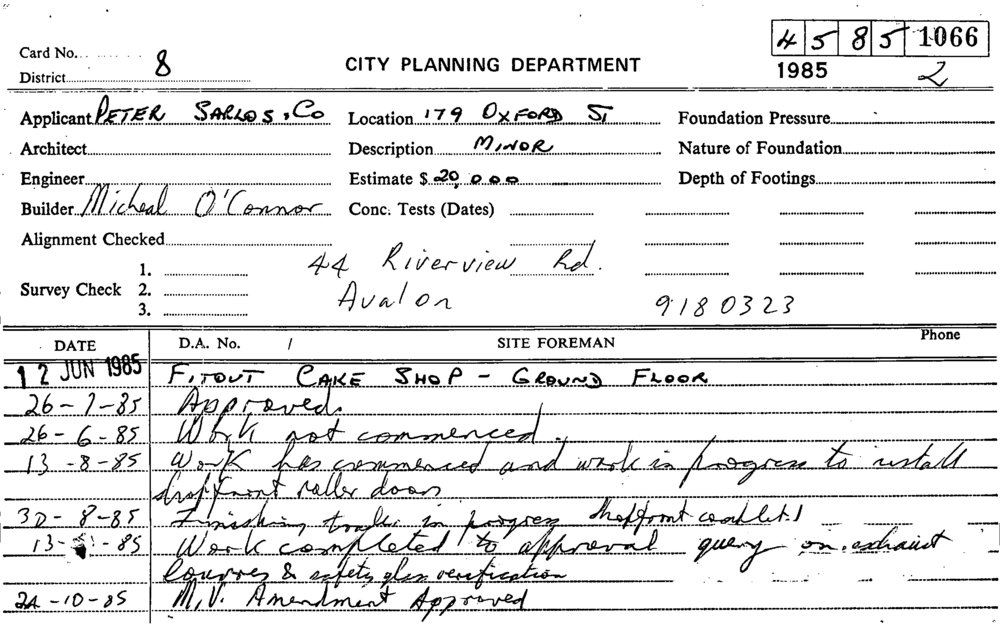 4 5 8 5 1066
Card No.
District 8
CITY PLANNING DEPARTMENT
1985 2
Applicant PETER SARLOS & Co
Location 179 OXFORD ST
Foundation Pressure
Architect
Description MINOR
Nature of Foundation
Engineer
Estimate $ 20,000
Depth of Footings
Builder Micheal O'Connor
Conc. Tests (Dates)
Alignment Checked
44 Riverview Rd.
Survey Check 1.
2.
3.
Avalon 9180323
DATE D.A. No. / SITE FOREMAN Phone
12 JUN 1985 FITOUT CAKE SHOP - GROUND FLOOR
26-7-85 Approved.
26-6-85 Work not commenced.
13-8-85 Work has commenced and work in progress to install
shopfront roller doors
30-8-85 Finishing trades in progress shopfront
13- -85 Work completed to approval query on exhaust
louvres & safety glass verification
24-10-85 M.V. Amendment Approved